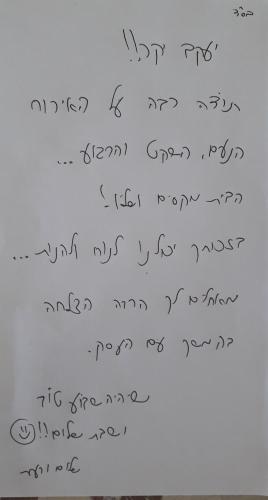 בס"ד
יעקב יקר!!
תודה רבה על האירוח
הנעים, השקט והרגוע...
הבית מקסים ושליו!
בזכותך יכולנו לנוח ולהנות...
מאחלים לך הרבה הצלחה
בהמשך עם העסק.
שיהיה שבוע טוב
ושבת שלום!!